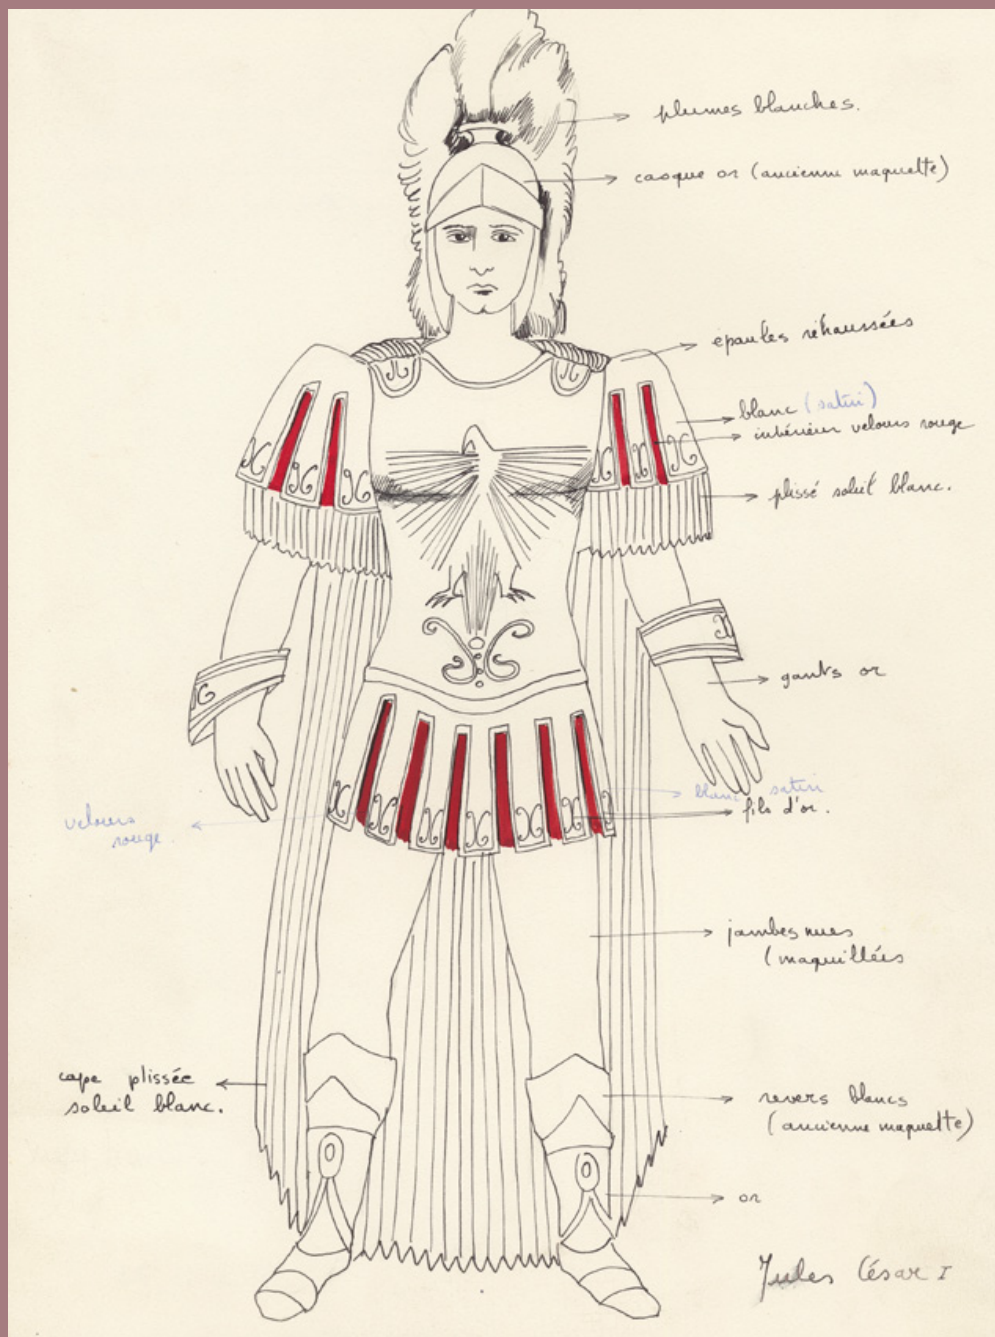 plumes blanches.
casque or (ancienne maquette)
épaules réhaussées
blanc (satin)
intérieur velours rouge
plissé soleil blanc.
gants or
blanc satin
fils d'or.
velours
rouge.
jambes nues
(maquillées
cape plissée
soleil blanc.
revers blancs
(ancienne maquette)
or
Jules César I